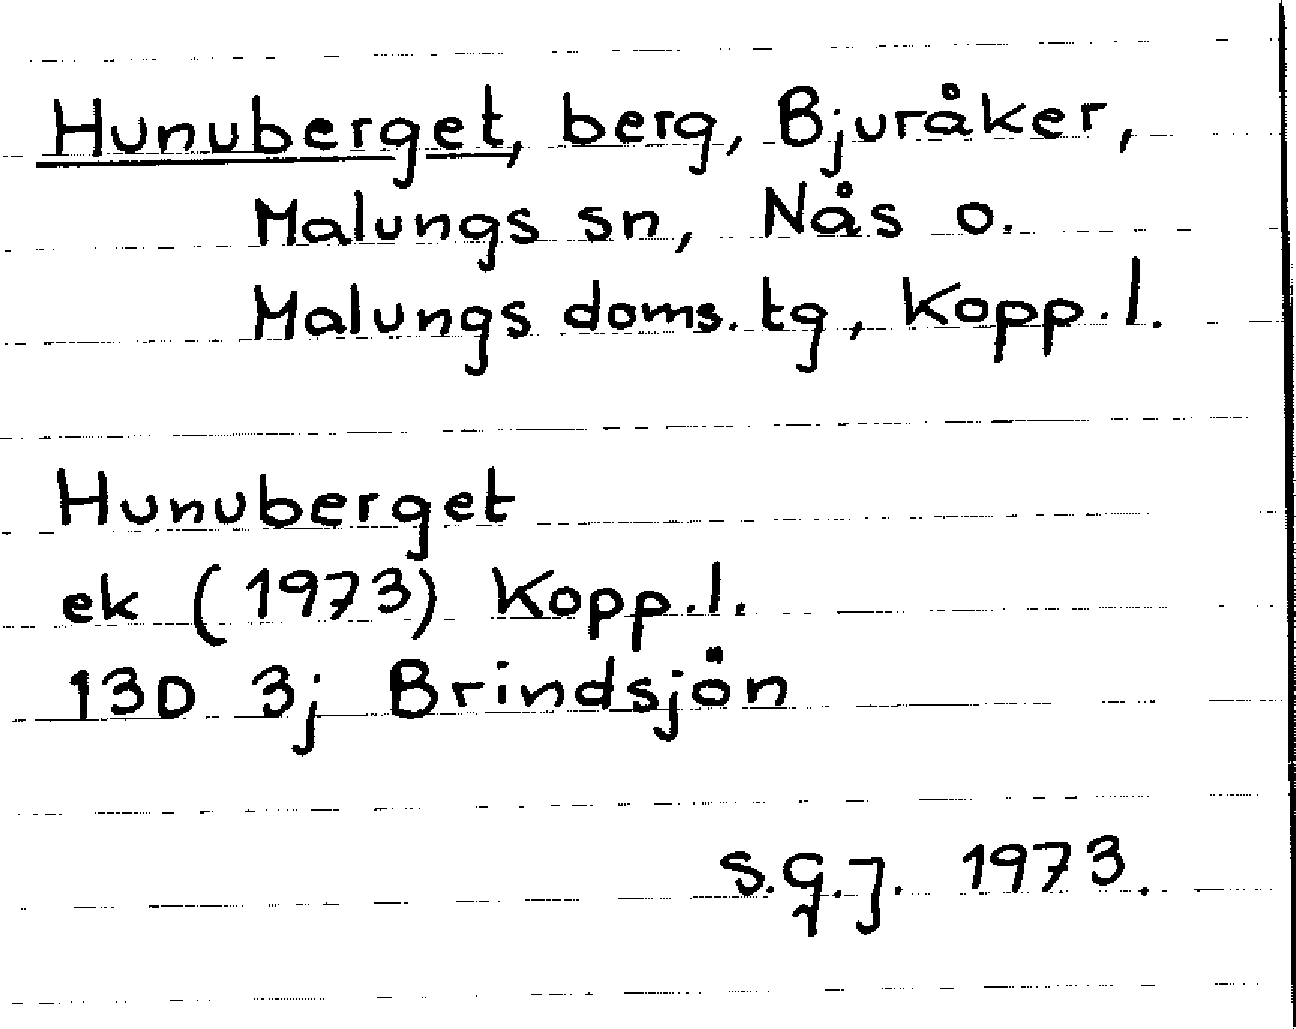 Hunuberget, berg, Bjuråker,
Malungs sn, Nås o.
Malungs doms.tg, Kopp.l.
Hunuberget
ek (1973) Kopp.l.
13D 3j Brindsjön
S.G.J. 1973.